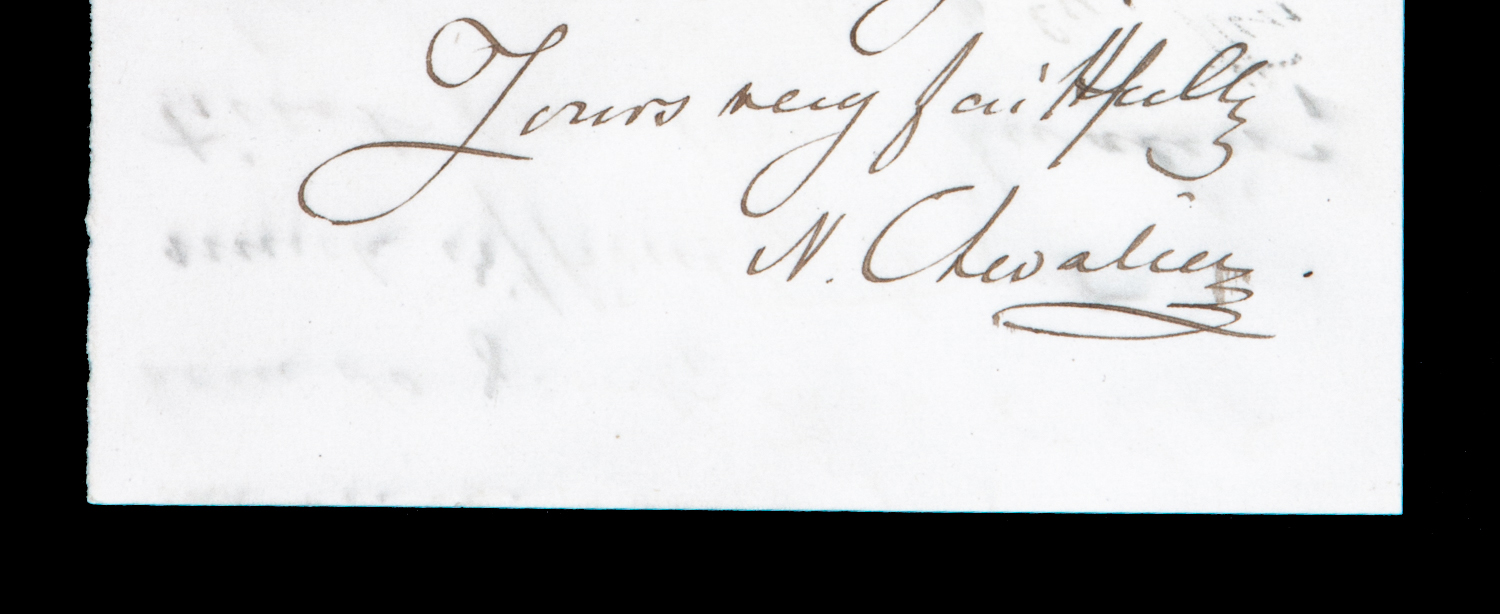 Yours very faithfully
N. Chevalier.